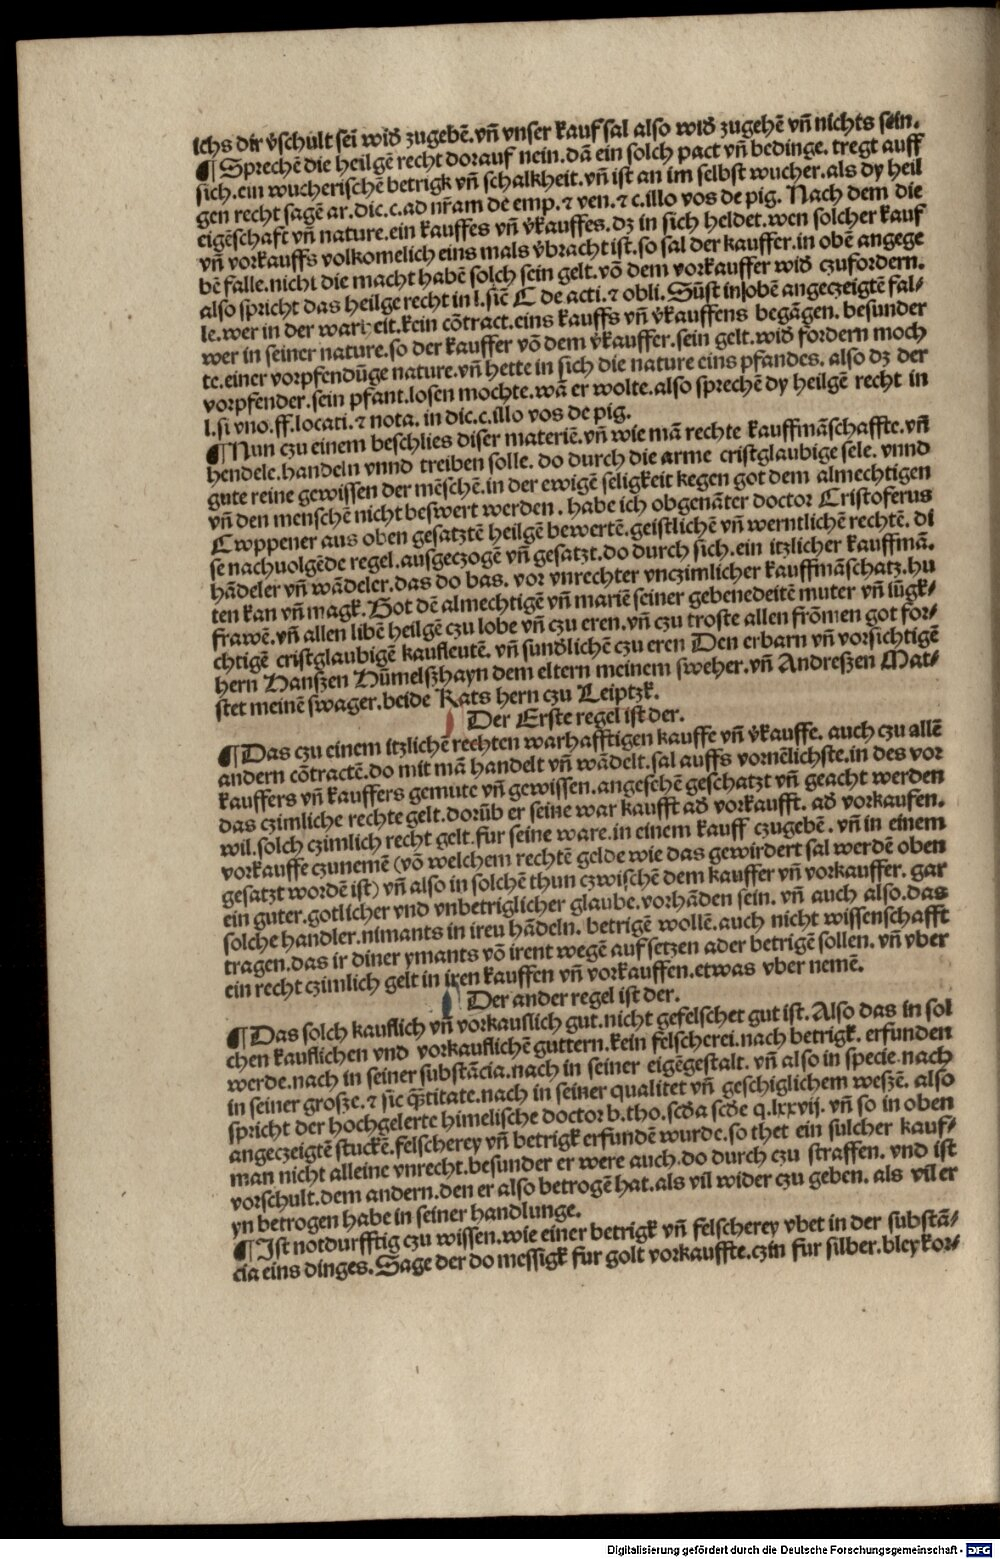 ichs dir v̓schult sei̅ wid᷒ zugebe̅. vn̅ vnser kauf sal also wid᷒ zugehe̅ vn̅ nichts sein.
¶ Spreche̅ die heilge̅ recht dorauf nein. da̅ ein solch pact vn̅ bedinge. tregt auff
sich. ein wucherische̅ betrigk vn̅ schalkheit. vn̅ ist an im selbst wucher. als dy heil
gen recht sage̅ ar. dic. c. ad nr̅am de emp. ⁊ ven. ⁊ c. illo vos de pig. Nach dem die
eige̅schaft vn̅ nature. ein kauffes vn̅ v̓kauffes. dz in sich heldet. wen solcher kauf
vn̅ vorkauffs volkomelich eins mals v̓bracht ist. so sal der kauffer. in obe̅ angege
be̅ falle. nicht die macht habe̅ solch sein gelt. vo̅ dem vorkauffer wid᷒ czufordern.
also spricht das heilge recht in l. sie̅ C de acti. ⁊ obli. Su̅st in obe̅ angeczeigte̅ fal⸗
le. wer in der warheit. kein co̅tract. eins kauffs vn̅ v̓kauffens bega̅gen. besunder
wer in seiner nature. so der kauffer vo̅ dem v̓kauffer. sein gelt. wid᷒ fordern moch
te. einer vorpfendu̅ge nature. vn̅ hette in sich die nature eins pfandes. also dz der
vorpfender. sein pfant. losen mochte. wa̅ er wolte. also spreche̅ dy heilge̅ recht in
l. si vno. ff. locati. ⁊ nota. in dic. c. illo vos de pig.
¶ Nun czu einem beschlies diser materie̅. vn̅ wie ma̅ rechte kauffma̅schaffte. vn̅
hendele. handeln vnnd treiben solle. do durch die arme cristglaubige sele. vnnd
gute reine gewissen der me̅sche̅. in der ewige̅ seligkeit kegen got dem almechtigen
vn̅ den mensche̅ nicht beswert werden. habe ich obgena̅ter doctor Cristoferus
Cwppener aus oben gesatzte̅ heilge̅ bewerte̅. geistliche̅ vn̅ werntliche̅ rechte̅. di
se nachuolge̅de regel. ausgeczoge̅ vn̅ gesatzt. do durch sich. ein itzlicher kauffma̅.
ha̅deler vn̅ wa̅deler. das do bas. vor vnrechter vnczimlicher kauffma̅schatz. hu
ten kan vn̅ magk. Got de̅ almechtige̅ vn̅ marie̅ seiner gebenedeite̅ muter vn̅ iu̅gk⸗
frawe̅. vn̅ allen libe̅ heilge̅ czu lobe vn̅ czu eren. vn̅ czu troste allen fro̅men got for⸗
chtige̅ cristglaubige̅ kaufleute̅. vn̅ sund᷒liche̅ czu eren Den erbarn vn̅ vorsichtige̅
hern Hanszen Hu̅melszhayn dem eltern meinem sweher. vn̅ Andreszen Mat⸗
stet meine̅ swager. beide Rats hern czu Leiptzk.
Der Erste regel ist der.
¶ Das czu einem itzliche̅ rechten warhafftigen kauffe vn̅ v̓kauffe. auch czu alle̅
andern co̅tracte̅. do mit ma̅ handelt vn̅ wa̅delt. sal auffs vorne̅lichste. in des vor
kauffers vn̅ kauffers gemute vn̅ gewissen. angesche̅ geschatzt vn̅ geacht werden
das czimliche rechte gelt. doru̅b er seine war kaufft ad᷒ vorkaufft. ad᷒ vorkaufen.
wil. solch czimlich recht gelt. fur seine ware. in einem kauff czugebe̅. vn̅ in einem
vorkauffe czuneme̅ (vo̅ welchem rechte̅ gelde wie das gewirdert sal werde̅ oben
gesatzt worde̅ ist) vn̅ also in solche̅ thun czwische̅ dem kauffer vn̅ vorkauffer. gar
ein guter. gotlicher vnd vnbetriglicher glaube. vorha̅den sein. vn̅ auch also. das
solche handler. nimants in iren ha̅deln. betrige̅ wolle̅. auch nicht wissenschafft
tragen. das ir diner ymants vo̅ irent wege̅ aufsetzen ader betrige̅ sollen. vn̅ vber
ein recht czimlich gelt in iren kauffen vn̅ vorkauffen. etwas vber neme̅.
Der ander regel ist der.
¶ Das solch kauflich vn̅ vorkauflich gut. nicht gefelschet gut ist. Also das in sol
chen kauflichen vnd vorkaufliche̅ guttern. kein felscherei. nach betrigk. erfunden
werde. nach in seiner substa̅cia. nach in seiner eige̅gestalt. vn̅ also in specie. nach
in seiner grosze. ⁊ sic qꝫtitate. nach in seiner qualitet vn̅ geschiglichem wesze̅. also
spricht der hochgelerte himelische doctor b. tho. scd᷒a scd᷒e q. lxxvij. vn̅ so in oben
angeczeigte̅ stucke̅. felscherey vn̅ betrigk erfunde̅ wurde. so thet ein sulcher kauf⸗
man nicht alleine vnrecht. besunder er were auch. do durch czu straffen. vnd ist
vorschult. dem andern. den er also betroge̅ hat. als vil wider czu geben. als vil er
yn betrogen habe in seiner handlunge.
¶ Ist notdurfftig czu wissen. wie einer betrigk vn̅ felscherey vbet in der substa̅⸗
cia eins dinges. Sage der do messigk fur golt vorkauffte. czin fur silber. bley kor⸗
Digitalisierung gefördert durch die Deutsche Forschungsgemeinschaft - DFG